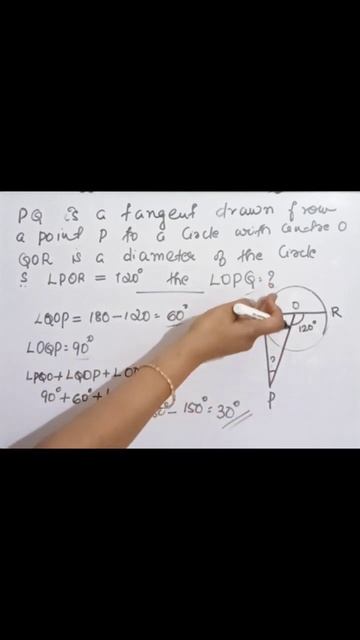 PQ is a tangent drawn from
a point P to a Circle with centre O
QOR is a diameter of the Circle
S LPOR = 120° the LOPQ = ?
LQOP = 180 - 120 = 60°
LOQP = 90°
LPQO + LQOP + LO
90° + 60° +
- 150° = 30°
O
R
120°
?
P